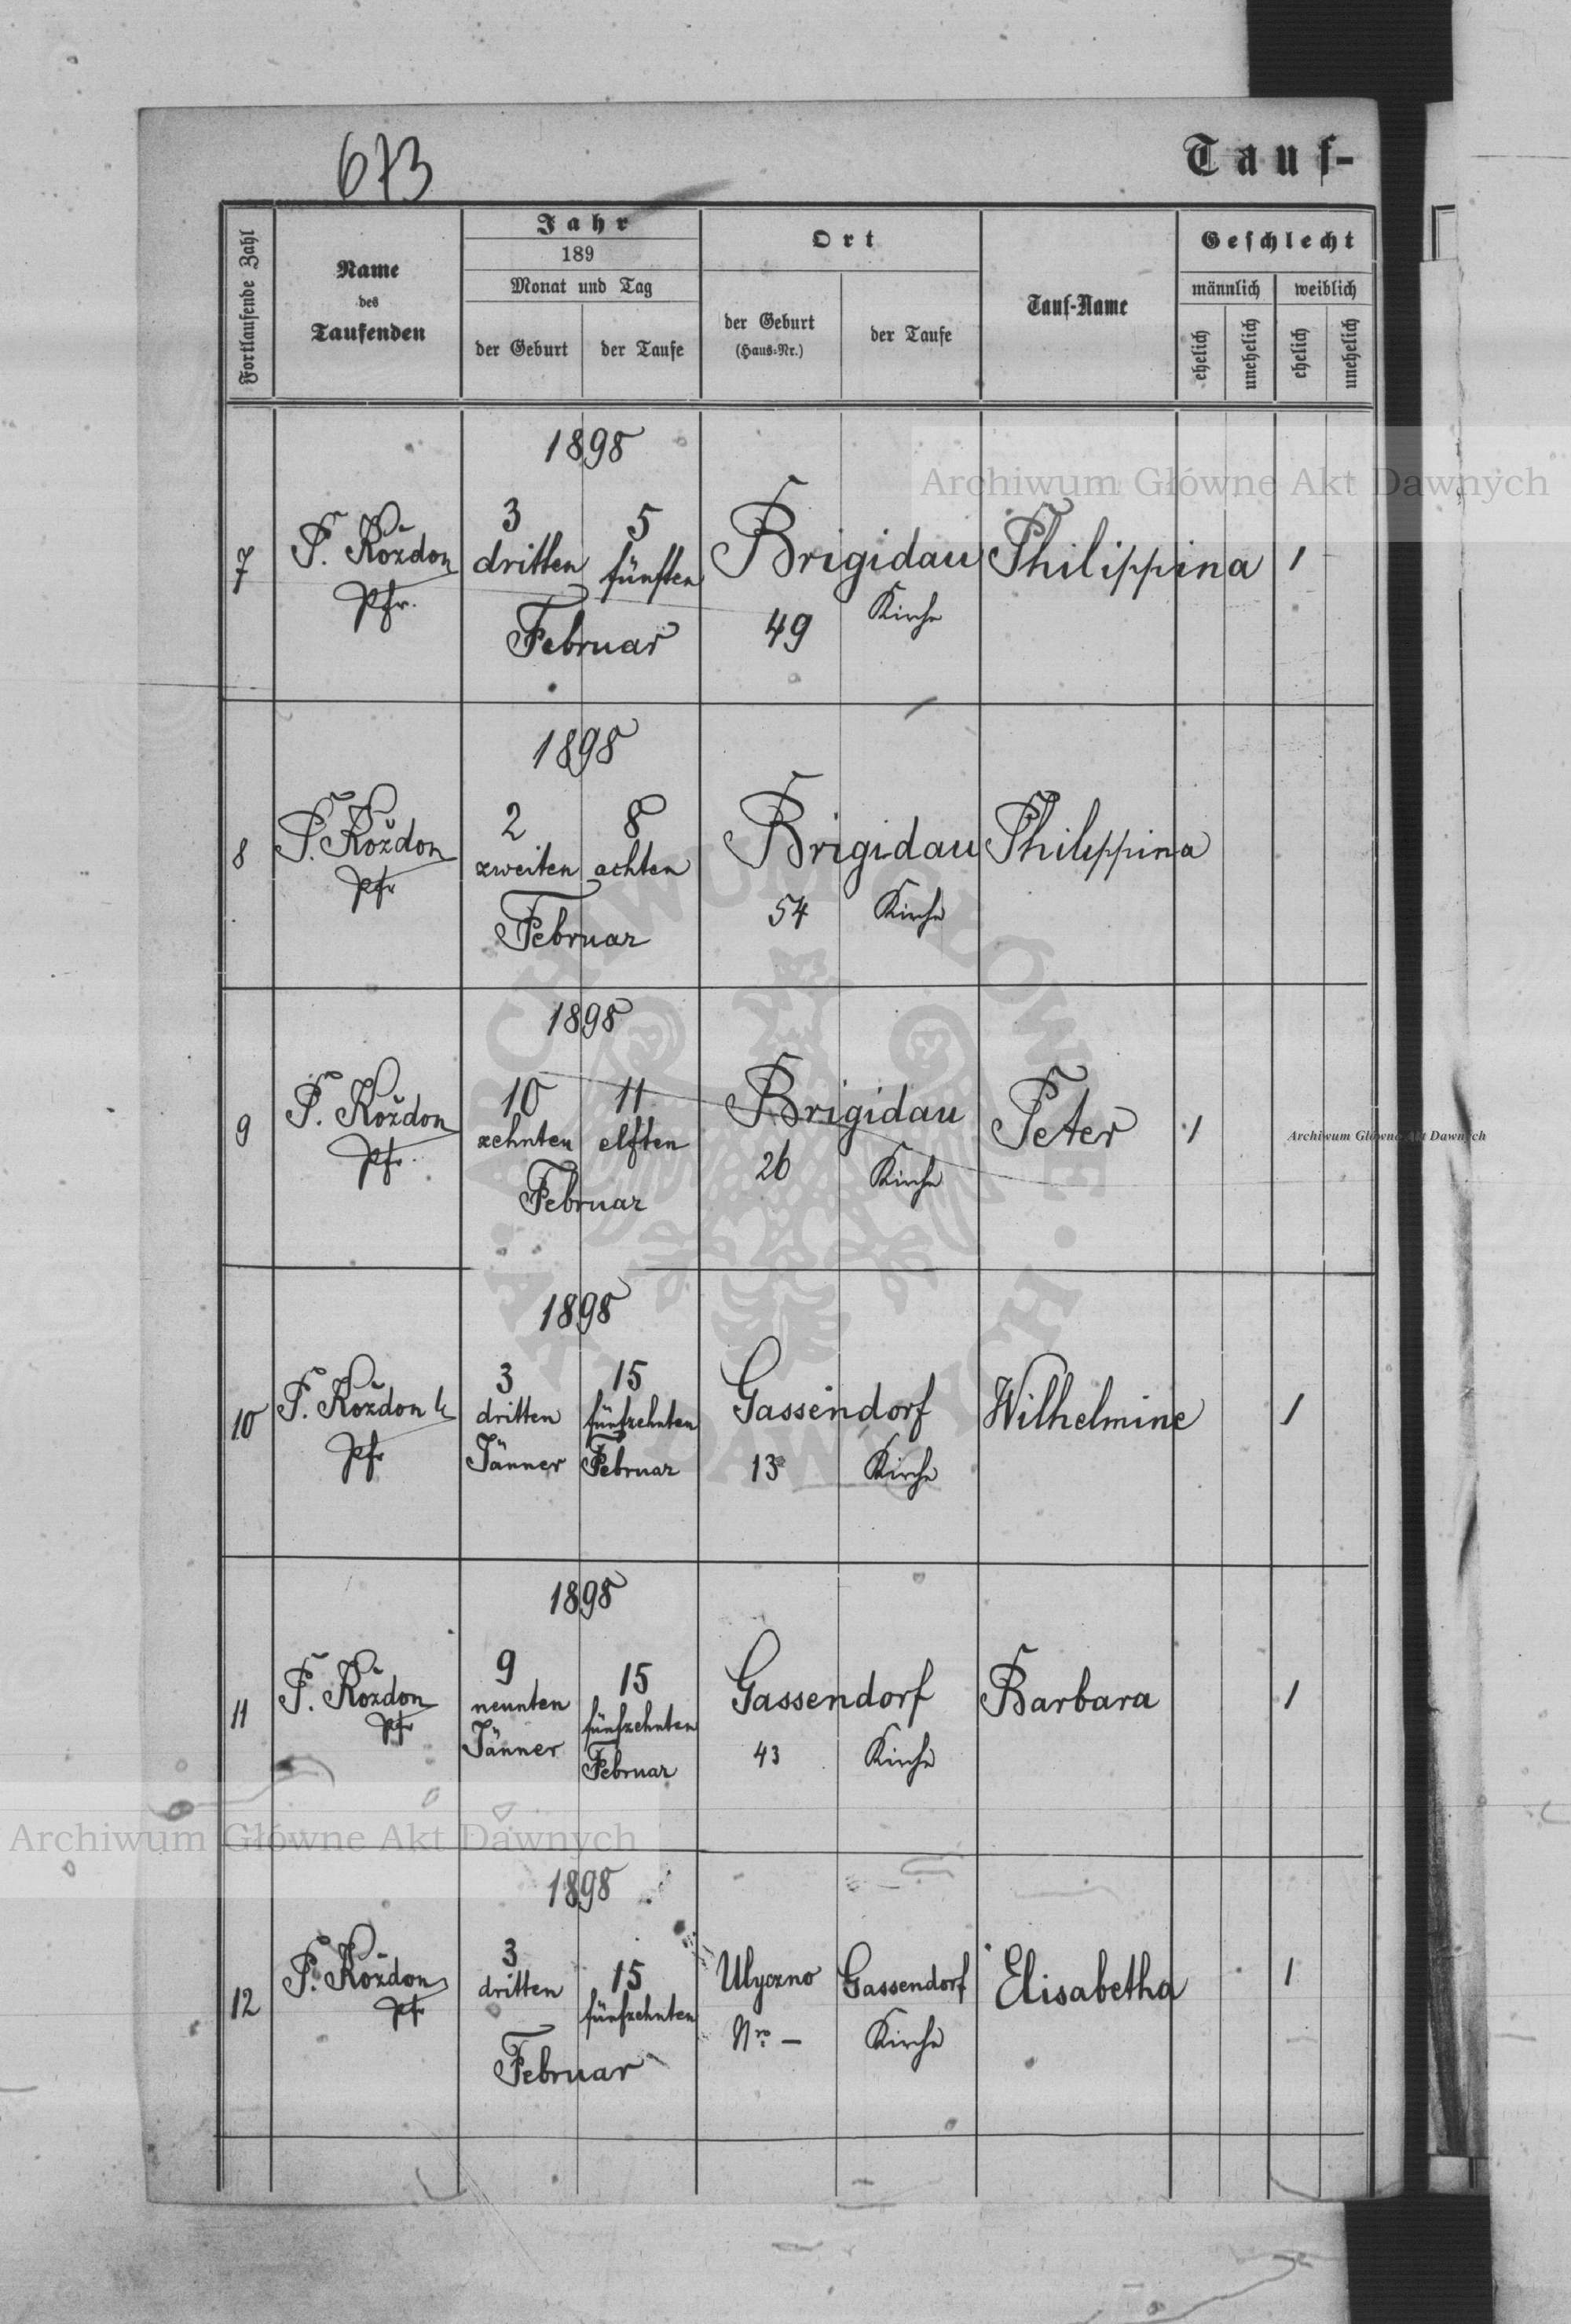 673
Tauf-
Fortlaufende Zahl
Name
des
Taufenden
Jahr
189
Monat und Tag
der Geburt
der Taufe
Ort
der Geburt
(Haus-Nr.)
der Taufe
Tauf-Name
Geschlecht
männlich
weiblich
ehelich
unehelich
ehelich
unehelich
Archiwum Główne Akt Dawnych
1898
7
P. Koždon
Pfr.
3
dritten
5
fünften
Februar
Brigidau
49
Kirche
Philippina
1
1898
8
P. Koždon
Pfr
2
zweiten
8
achten
Februar
Brigidau
54
Kirche
Philippina
1898
9
P. Koždon
Pfr.
10
zehnten
11
elften
Februar
Brigidau
26
Kirche
Peter
1
Archiwum Główne Akt Dawnych
ARCHIWUM GŁÓWNE
· AKT DAWNYCH ·
1898
10
P. Koždon
Pfr
3
dritten
Jänner
15
fünfzehnten
Februar
Gassendorf
13
Kirche
Wilhelmine
1
1898
11
P. Koždon
Pfr
9
neunten
Jänner
15
fünfzehnten
Februar
Gassendorf
43
Kirche
Barbara
1
Archiwum Główne Akt Dawnych
1898
12
P. Koždon
Pfr
3
dritten
15
fünfzehnten
Februar
Ulyczno
Nro –
Gassendorf
Kirche
Elisabetha
1